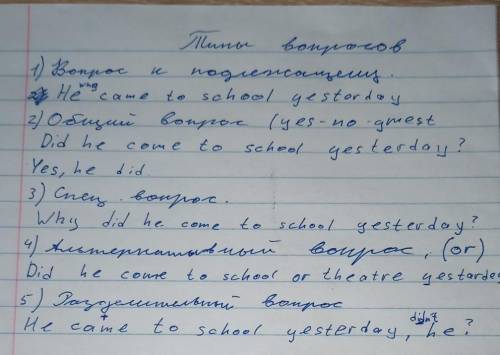 Типы вопросов
1) Вопрос к подлежащему.
He who came to school yesterday
2) Общий вопрос (yes-no quest
Did he come to school yesterday?
Yes, he did.
3) Спец. вопрос.
Why did he come to school yesterday?
4) Альтернативный вопрос, (or)
Did he come to school or theatre yestarday
5) Разделительный вопрос
He came to school yesterday, didn't he?